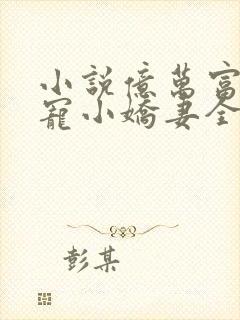 小說億萬富
寵小嬌妻全
彭某